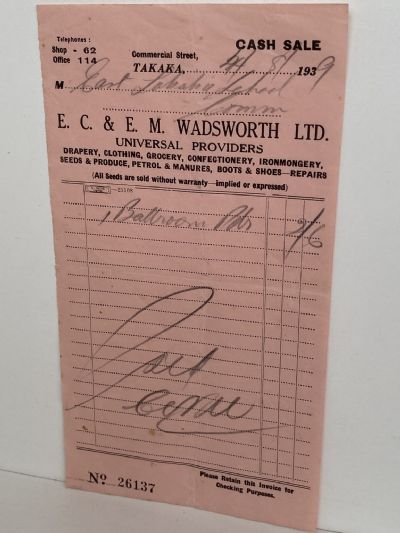 Telephones :
Shop - 62
Office 114
CASH SALE
Commercial Street,
TAKAKA, 4/8/1939
M East Takaka School
Comm
E. C. & E. M. WADSWORTH LTD.
UNIVERSAL PROVIDERS
DRAPERY, CLOTHING, GROCERY, CONFECTIONERY, IRONMONGERY,
SEEDS & PRODUCE, PETROL & MANURES, BOOTS & SHOES—REPAIRS
(All Seeds are sold without warranty—implied or expressed)
1 Ballroom Pdr 2/6
Paid
No 26137
Please Retain this Invoice for
Checking Purposes.